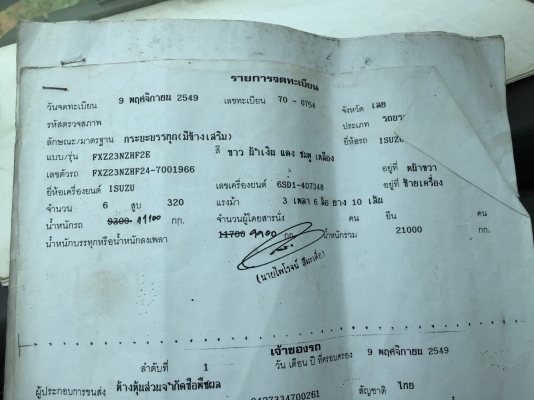 รายการจดทะเบียน
วันจดทะเบียน 9 พฤศจิกายน 2549 เลขทะเบียน 70 - 0754 จังหวัด เลย
รหัสตรวจสภาพ ประเภท รถบร
ลักษณะ/มาตรฐาน กระบะบรรทุก(มีข้างเสริม) ยี่ห้อรถ ISUZU
แบบ/รุ่น FXZ23NZHF2E สี ขาว น้ำเงิน แดง ชมพู เหลือง
เลขตัวรถ FXZ23NZHF24-7001966 อยู่ที่ หน้าขวา
ยี่ห้อเครื่องยนต์ ISUZU เลขเครื่องยนต์ 6SD1-407348 อยู่ที่ ซ้ายเครื่อง
จำนวน 6 สูบ 320 แรงม้า 3 เพลา 6 ล้อ ยาง 10 เส้น
น้ำหนักรถ 9300 กก. จำนวนผู้โดยสารนั่ง คน ยืน คน
น้ำหนักบรรทุกหรือน้ำหนักลงเพลา 11700 9900 กก. น้ำหนักรวม 21000 กก.
(นายไพโรจน์
เจ้าของรถ
ลำดับที่ 1 วัน เดือน ปี ที่ครอบครอง 9 พฤศจิกายน 2549
ผู้ประกอบการขนส่ง ห้างหุ้นส่วนจำกัดชื่อพืชผล
0427334700261 สัญชาติ ไทย